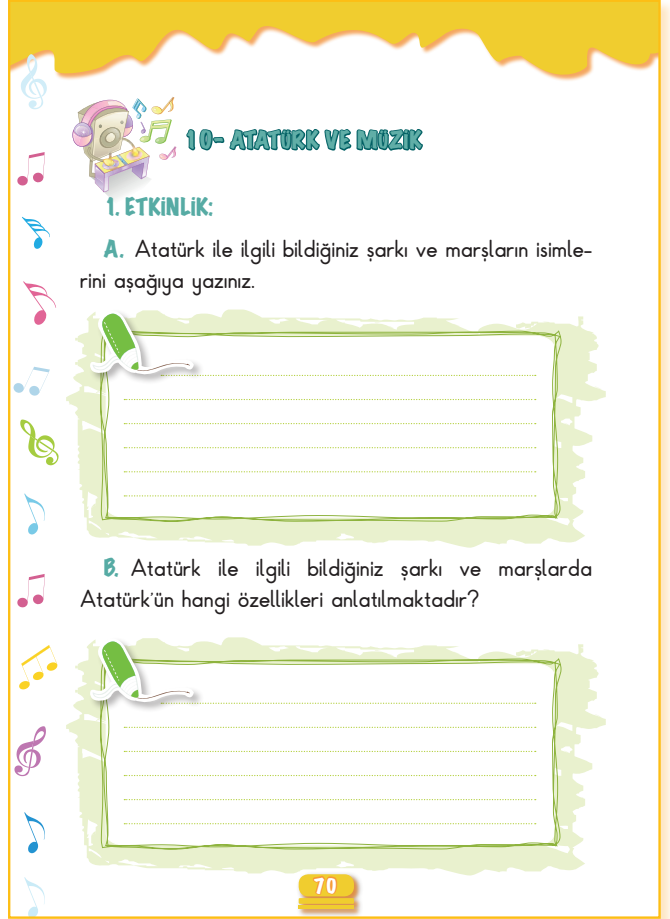 10- ATATÜRK VE MÜZİK
1. ETKİNLİK:
A. Atatürk ile ilgili bildiğiniz şarkı ve marşların isimle-
rini aşağıya yazınız.
B. Atatürk ile ilgili bildiğiniz şarkı ve marşlarda
Atatürk'ün hangi özellikleri anlatılmaktadır?
70